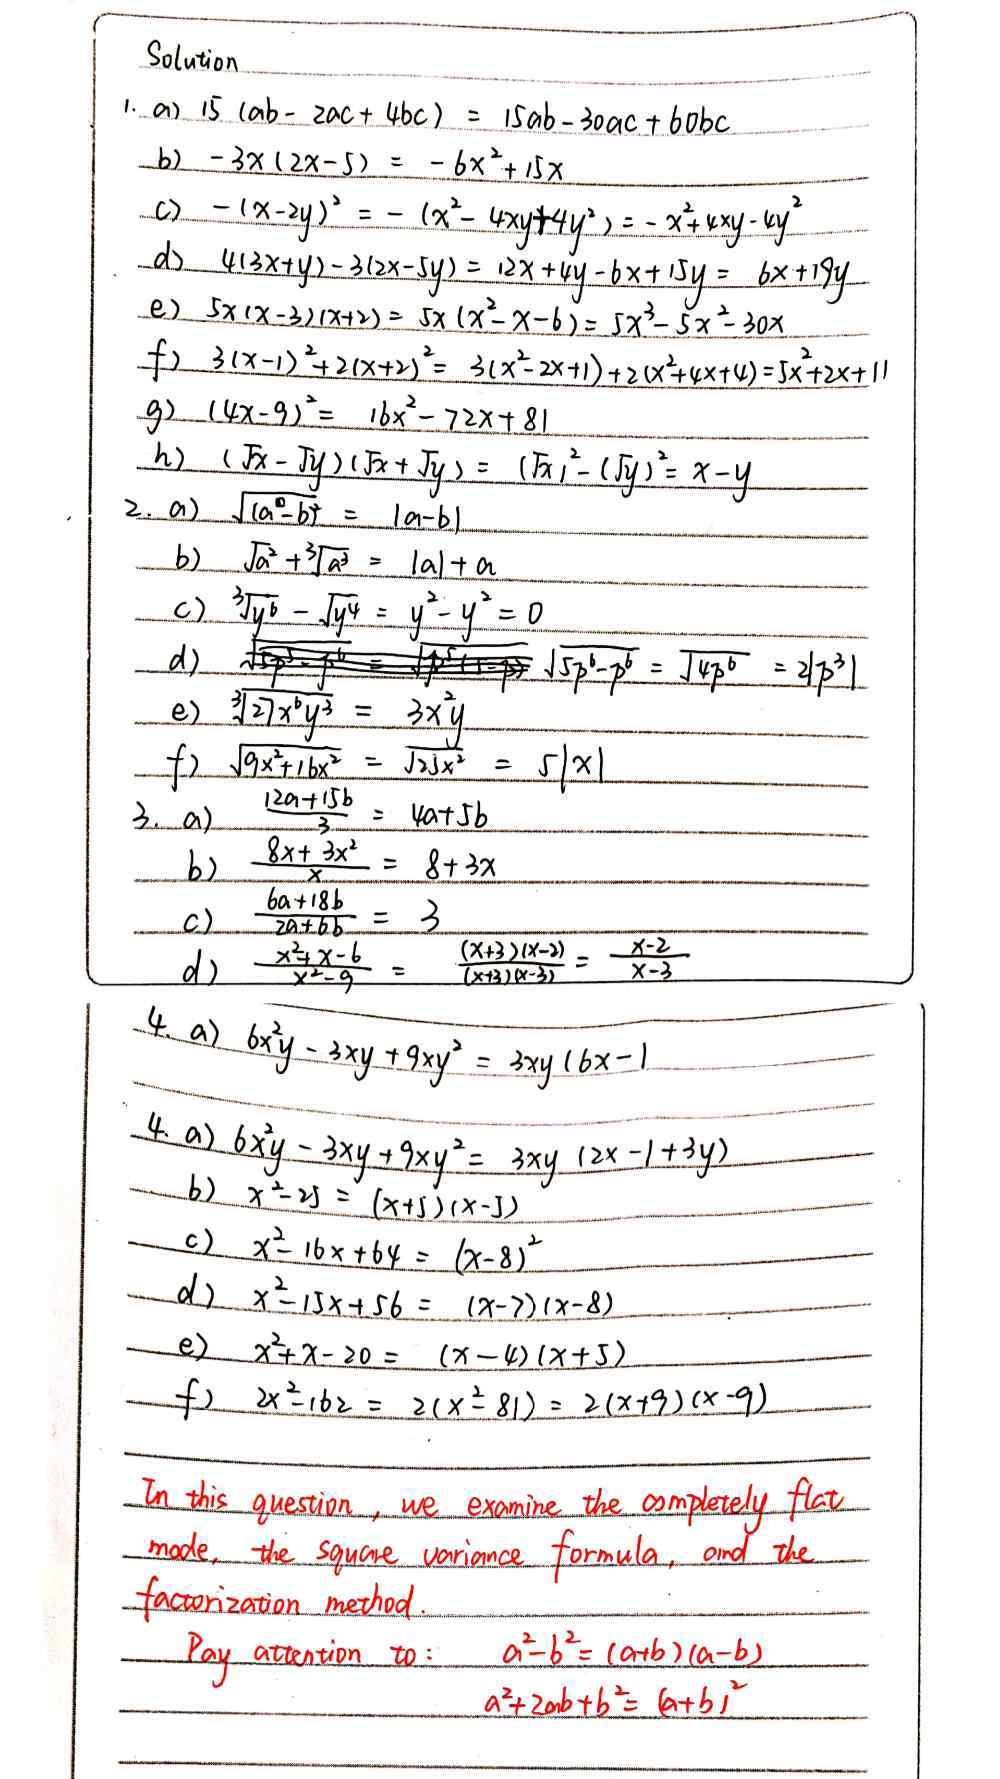 Solution
1. a) 15 (ab - 2ac + 4bc) = 15ab - 30ac + 60bc
b) -3x(2x-5) = -6x²+15x
c) -(x-2y)² = -(x²-4xy+4y²) = -x²+4xy-4y²
d) 4(3x+y)-3(2x-5y) = 12x+4y-6x+15y = 6x+19y
e) 5x(x-3)(x+2) = 5x(x²-x-6) = 5x³-5x²-30x
f) 3(x-1)²+2(x+2)² = 3(x²-2x+1)+2(x²+4x+4) = 5x²+2x+11
g) (4x-9)² = 16x²-72x+81
h) (√x-√y)(√x+√y) = (√x)²-(√y)² = x-y
2. a) √(a-b)² = |a-b|
b) √a² + ³√a³ = |a|+a
c) ³√y⁶ - √y⁴ = y²-y² = 0
d) √5p⁶-p⁶ = √4p⁶ = 2|p³|
e) ³√27x⁶y³ = 3x²y
f) √9x²+16x² = √25x² = 5|x|
3. a) (12a+15b)/3 = 4a+5b
b) (8x+3x²)/x = 8+3x
c) (6a+18b)/(2a+6b) = 3
d) (x²+x-6)/(x²-9) = (x+3)(x-2)/(x+3)(x-3) = (x-2)/(x-3)
4. a) 6x²y - 3xy + 9xy² = 3xy (6x-1
4. a) 6x²y - 3xy + 9xy² = 3xy (2x-1+3y)
b) x²-25 = (x+5)(x-5)
c) x²-16x+64 = (x-8)²
d) x²-15x+56 = (x-7)(x-8)
e) x²+x-20 = (x-4)(x+5)
f) 2x²-162 = 2(x²-81) = 2(x+9)(x-9)
In this question, we examine the completely flat
mode, the square variance formula, and the
factorization method.
Pay attention to: a²-b²=(a+b)(a-b)
a²+2ab+b²=(a+b)²